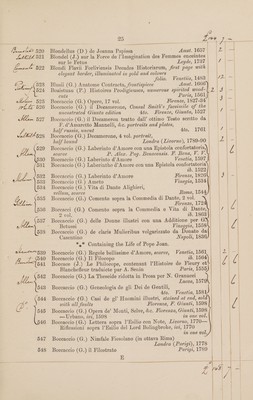 25
520 Blondellus (D.) de Joanna Papissa Amst. 1657
521 Blondel (J.) sur la Force de l'Imagination des Femmes enceintes
sur le Fœtus Leyde, 1737
522 Blondi Flavii Forliviensis Decades Historiarum, first page with
elegant border, illuminated in gold and colours
folio Venetiis, 1483
523 Blasii (G.) Anatome Contracta, frontispiece Amst. 1666
524 Boaistuau (P.) Histoires Prodigieuses, numerous spirited wood-
cuts Paris, 1561
525 Boccaccio (G.) Opere, 17 vol. Firenze, 1827-34
526 Boccaccio (G.) il Decamerone, Consul Smith's facsimile of the
uncastrated Giunta edition 4to. Firenze, Giunta, 1527
527 Boccaccio (G.) il Decameron tratto dall' ottimo Testo scritto da
F. d'Amaretto Mannelli, &c. portraits and plates,
half russia, uncut 4to. 1761
528 Boccaccio (G.) Decamerone, 4 vol. portrait,
half bound Londra (Livorno), 1789-90
529 Boccaccio (G.) Laberinto d'Amore con una Epistola confortatoria,
scarce P. Alex. Pag. Benacensis F. Bena, V. V.
530 Boccaccio (G.) Laberinto d'Amore Venetia, 1597
531 Boccaccio (G.) Laberinto d'Amore con una Epistola confortatoria
ib. 1525
532 Boccaccio (G.) Laberinto d'Amore Firenze, 1826
533 Boccaccio (G.) Ameto Vinegia, 1534
534 Boccaccio (G.) Vita di Dante Alighieri,
vellum, scarce Roma, 1544
535 Boccaccio (G.) Comento sopra la Commedia di Dante, 2 vol.
Firenze, 1724
536 Boccaccio (G.) Comento sopra la Commedia e Vita di Dante,
2 vol. ib. 1863
537 Boccaccio (G.) delle Donne illustri con una Additione per G.
Betussi Vinegia, 1558
538 Boccaccio (G.) de claris Mulieribus vulgarizzato da Donato da
Casentino Napoli, 1836
*** Containing the Life of Pope Joan.
539 Boccaccio (G.) Rogeto bellissimo d'Amore, scarce, Venetia, 1561
540 Boccaccio (G.) Il Filopono ib. 1504
541 Bocasse (J.) Le Philocope, contenant l'Histoire de Fleury et
Blanchefleur traduicte par A. Sevin Paris, 1555
542 Boccaccio (G.) La Theseide ridotta in Prosa per N. Granucci
Lucca, 1579
543 Boccaccio (G.) Geneologia de gli Dei de Gentili,
4to. Venetia, 1581
544 Boccaccio (G.) Casi de gl' Huomini illustri, stained at end, sold
with all faults Fiorenza, F. Giunti, 1598
545 Boccaccio (G.) Opera de' Monti, Selve, &c. Fiorenza, Giunti, 1598
—Urbano, ici, 1598 in one vol.
546 Boccaccio (G.) Lettera sopra l'Esilio con Note, Livorno, 1770—
Riflessioni sopra l'Esilio del Lord Bolingbroke, ici, 1770
in one vol.
547 Boccaccio (G.) Ninfale Fiesolano (in ottava Rima)
Londra (Parigi), 1778
548 Boccaccio (G.) il Filostrato Parigi, 1789
E